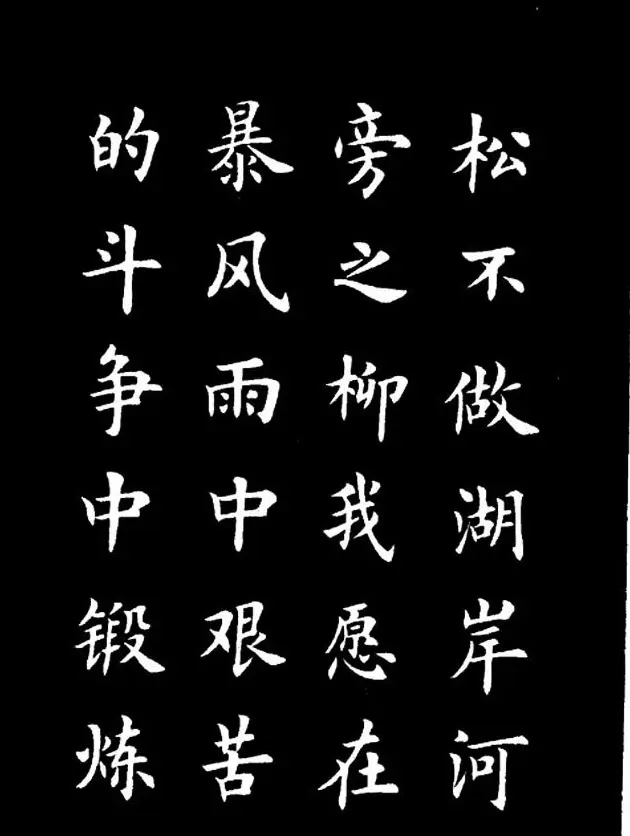 松不做湖岸河
旁之柳我愿在
暴风雨中艰苦
的斗争中锻炼